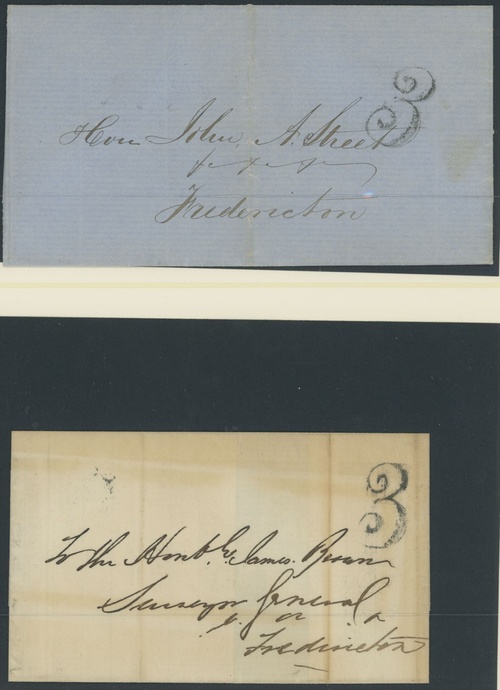 3
Hon John A. Street
&c &c &c
Fredericton
3
To the Honble James Brown
Surveyor General
&c &c
Fredericton